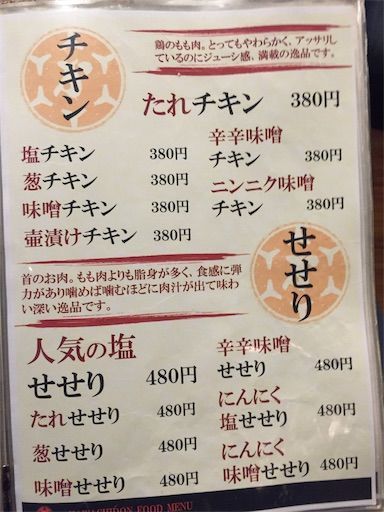 チキン
鶏のもも肉。とってもやわらかく、アッサリし
ているのにジューシ感、満載の逸品です。
たれチキン 380円
塩チキン 380円
葱チキン 380円
味噌チキン 380円
壺漬けチキン 380円
辛辛味噌
チキン 380円
ニンニク味噌
チキン 380円
せせり
首のお肉。もも肉よりも脂身が多く、食感に弾
力があり噛めば噛むほどに肉汁が出て味わ
い深い逸品です。
人気の塩
せせり 480円
たれせせり 480円
葱せせり 480円
味噌せせり 480円
辛辛味噌
せせり 480円
にんにく
塩せせり 480円
にんにく
味噌せせり 480円
FOOD MENU